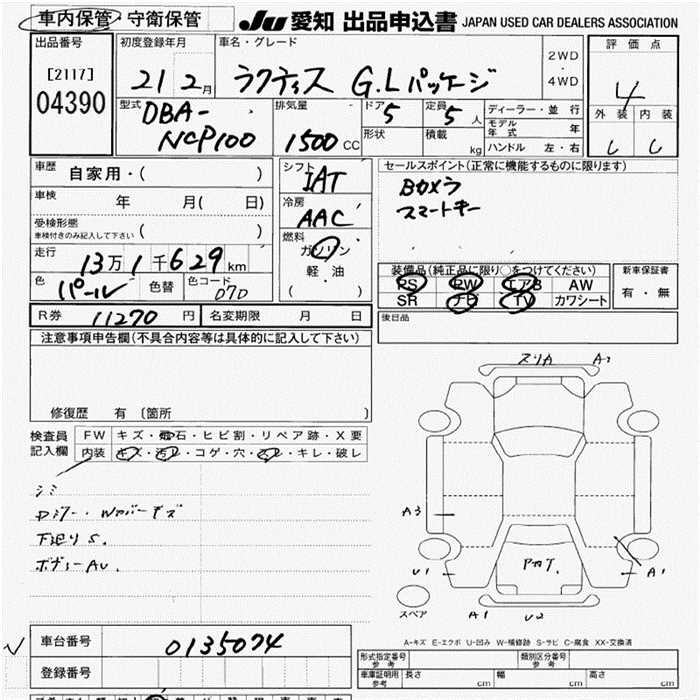 車内保管・守衛保管
JU 愛知 出品申込書 JAPAN USED CAR DEALERS ASSOCIATION
出品番号
[2117]
04390
初度登録年月
21年2月
車名・グレード
ラクティス G.Lパッケージ
2WD
・
4WD
評価点
4
外装 内装
し し
型式
DBA-
NCP100
排気量
1500 CC
ドア
5
定員
5人
形状
積載
kg
ディーラー・並行
モデル年式 年
ハンドル 左・右
車歴 自家用・( )
車検 年 月( 日)
受検形態
車検付きのみ記入して下さい ( )
走行 13万1千629km
色 パール 色替 色コード 070
シフト
IAT
冷房
AAC
燃料
ガソリン
軽・油
( )
セールスポイント(正常に機能するものに限ります)
Bカメラ
スマートキー
装備品(純正品に限り○をつけてください)
PS PW エアB AW
SR ナビ TV カワシート
新車保証書
有・無
R券 11270円 名変期限 月 日
後日品
注意事項申告欄(不具合内容等は具体的に記入して下さい)
修復歴 有 〔箇所 〕
検査員
記入欄
FW キズ・飛石・ヒビ割・リペア跡・X要
内装 キズ・汚レ・コゲ・穴・スレ・キレ・破レ
シミ
下廻りS.
ボデーAU.
スリA A2
A3
U1
A1
A1
U2
スペア
A-キズ E-エクボ U-凹み W-補修跡 S-サビ C-腐食 XX-交換済
車台番号 0135074
登録番号
形式指定番号
参考
類別区分番号
参考
車庫証明用
参考
長さ cm 幅 cm 高さ cm